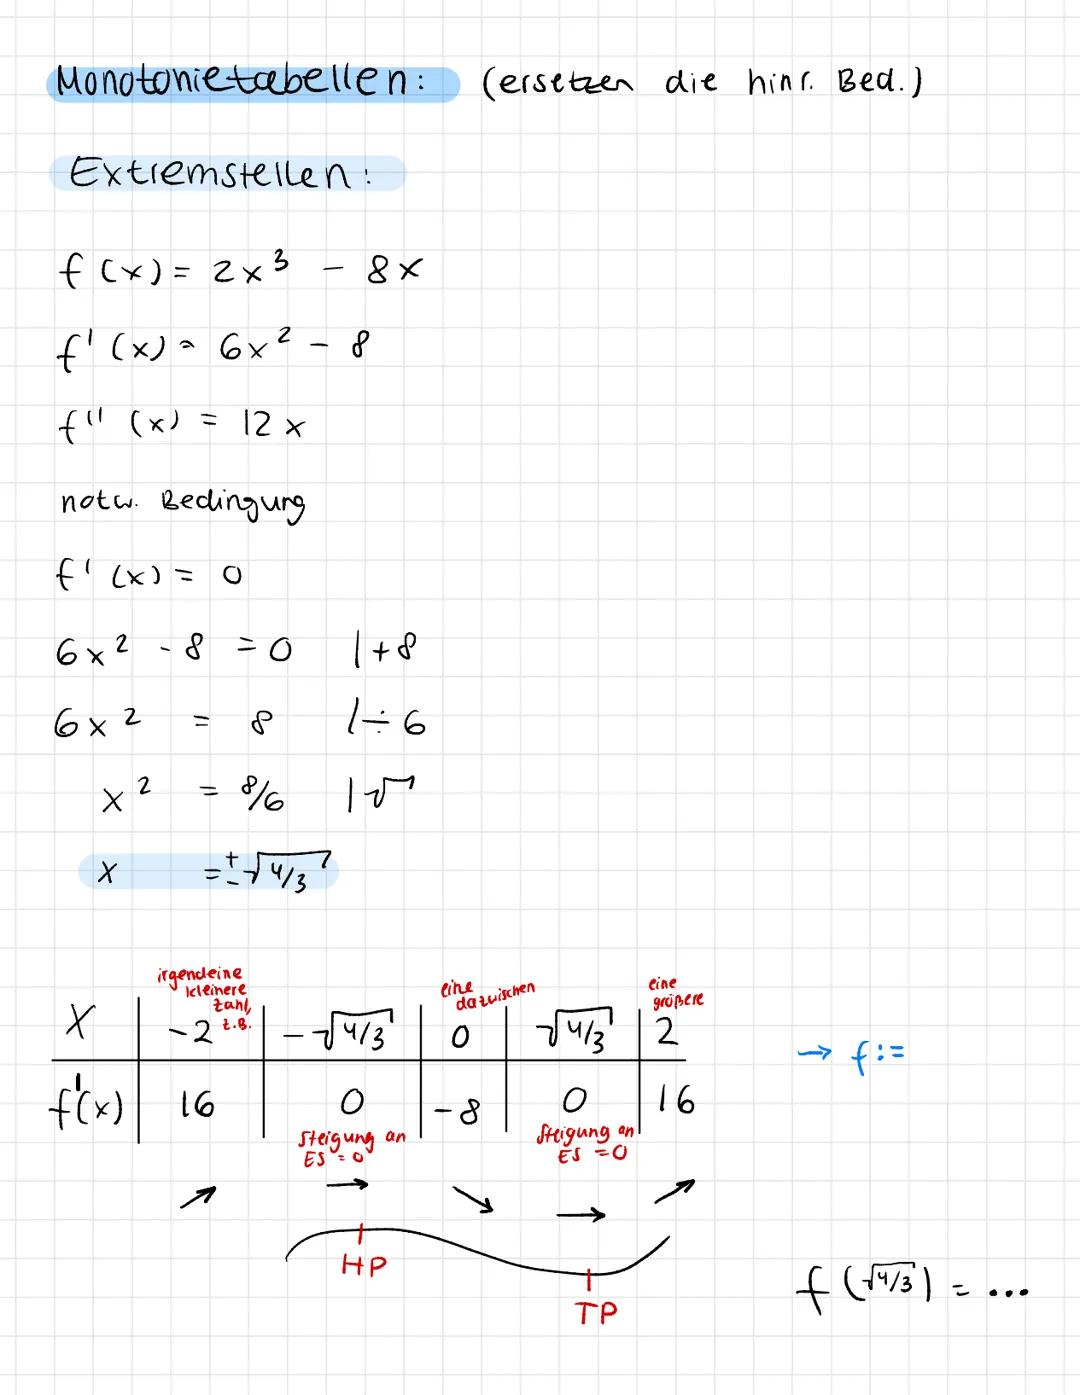 Monotonietabellen: (ersetzen die hinr. Bed.)
Extremstellen:
f(x) = 2x³ - 8x
f'(x) = 6x² - 8
f''(x) = 12x
notw. Bedingung
f'(x) = 0
6x² - 8 = 0 |+8
6x² = 8 |÷6
x² = 8/6 |√
x = ±√4/3
irgendeine kleinere zahl, z.B.
eine dazwischen
eine größere
x | -2 | -√4/3 | 0 | √4/3 | 2
→ f:=
f'(x) | 16 | 0 | -8 | 0 | 16
Steigung an ES = 0
Steigung an ES = 0
↗ → ↘ → ↗
HP
TP
f(√4/3) = ...